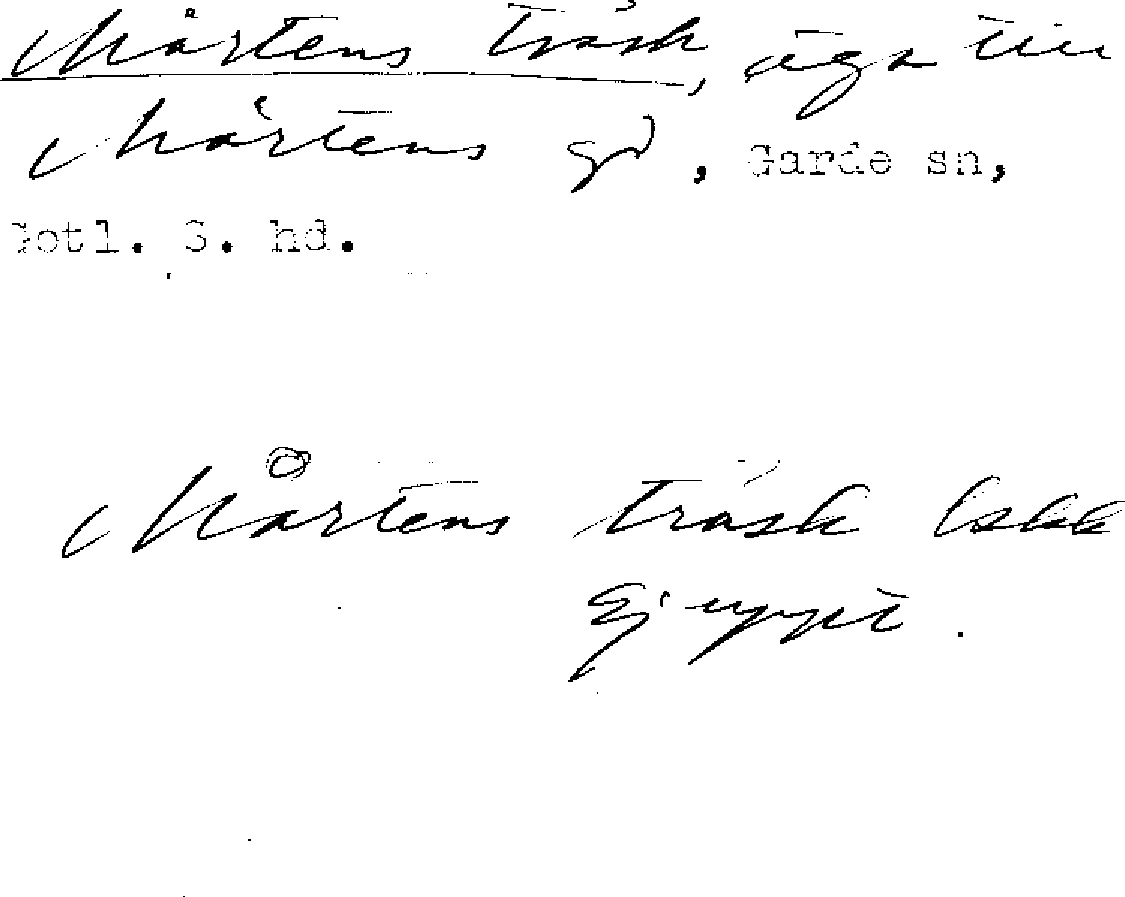 Mårtens träsk, äga till
Mårtens gd, Garde sn,
Gotl. S. hd.
Mårtens träsk Eskk
Ej uppt.